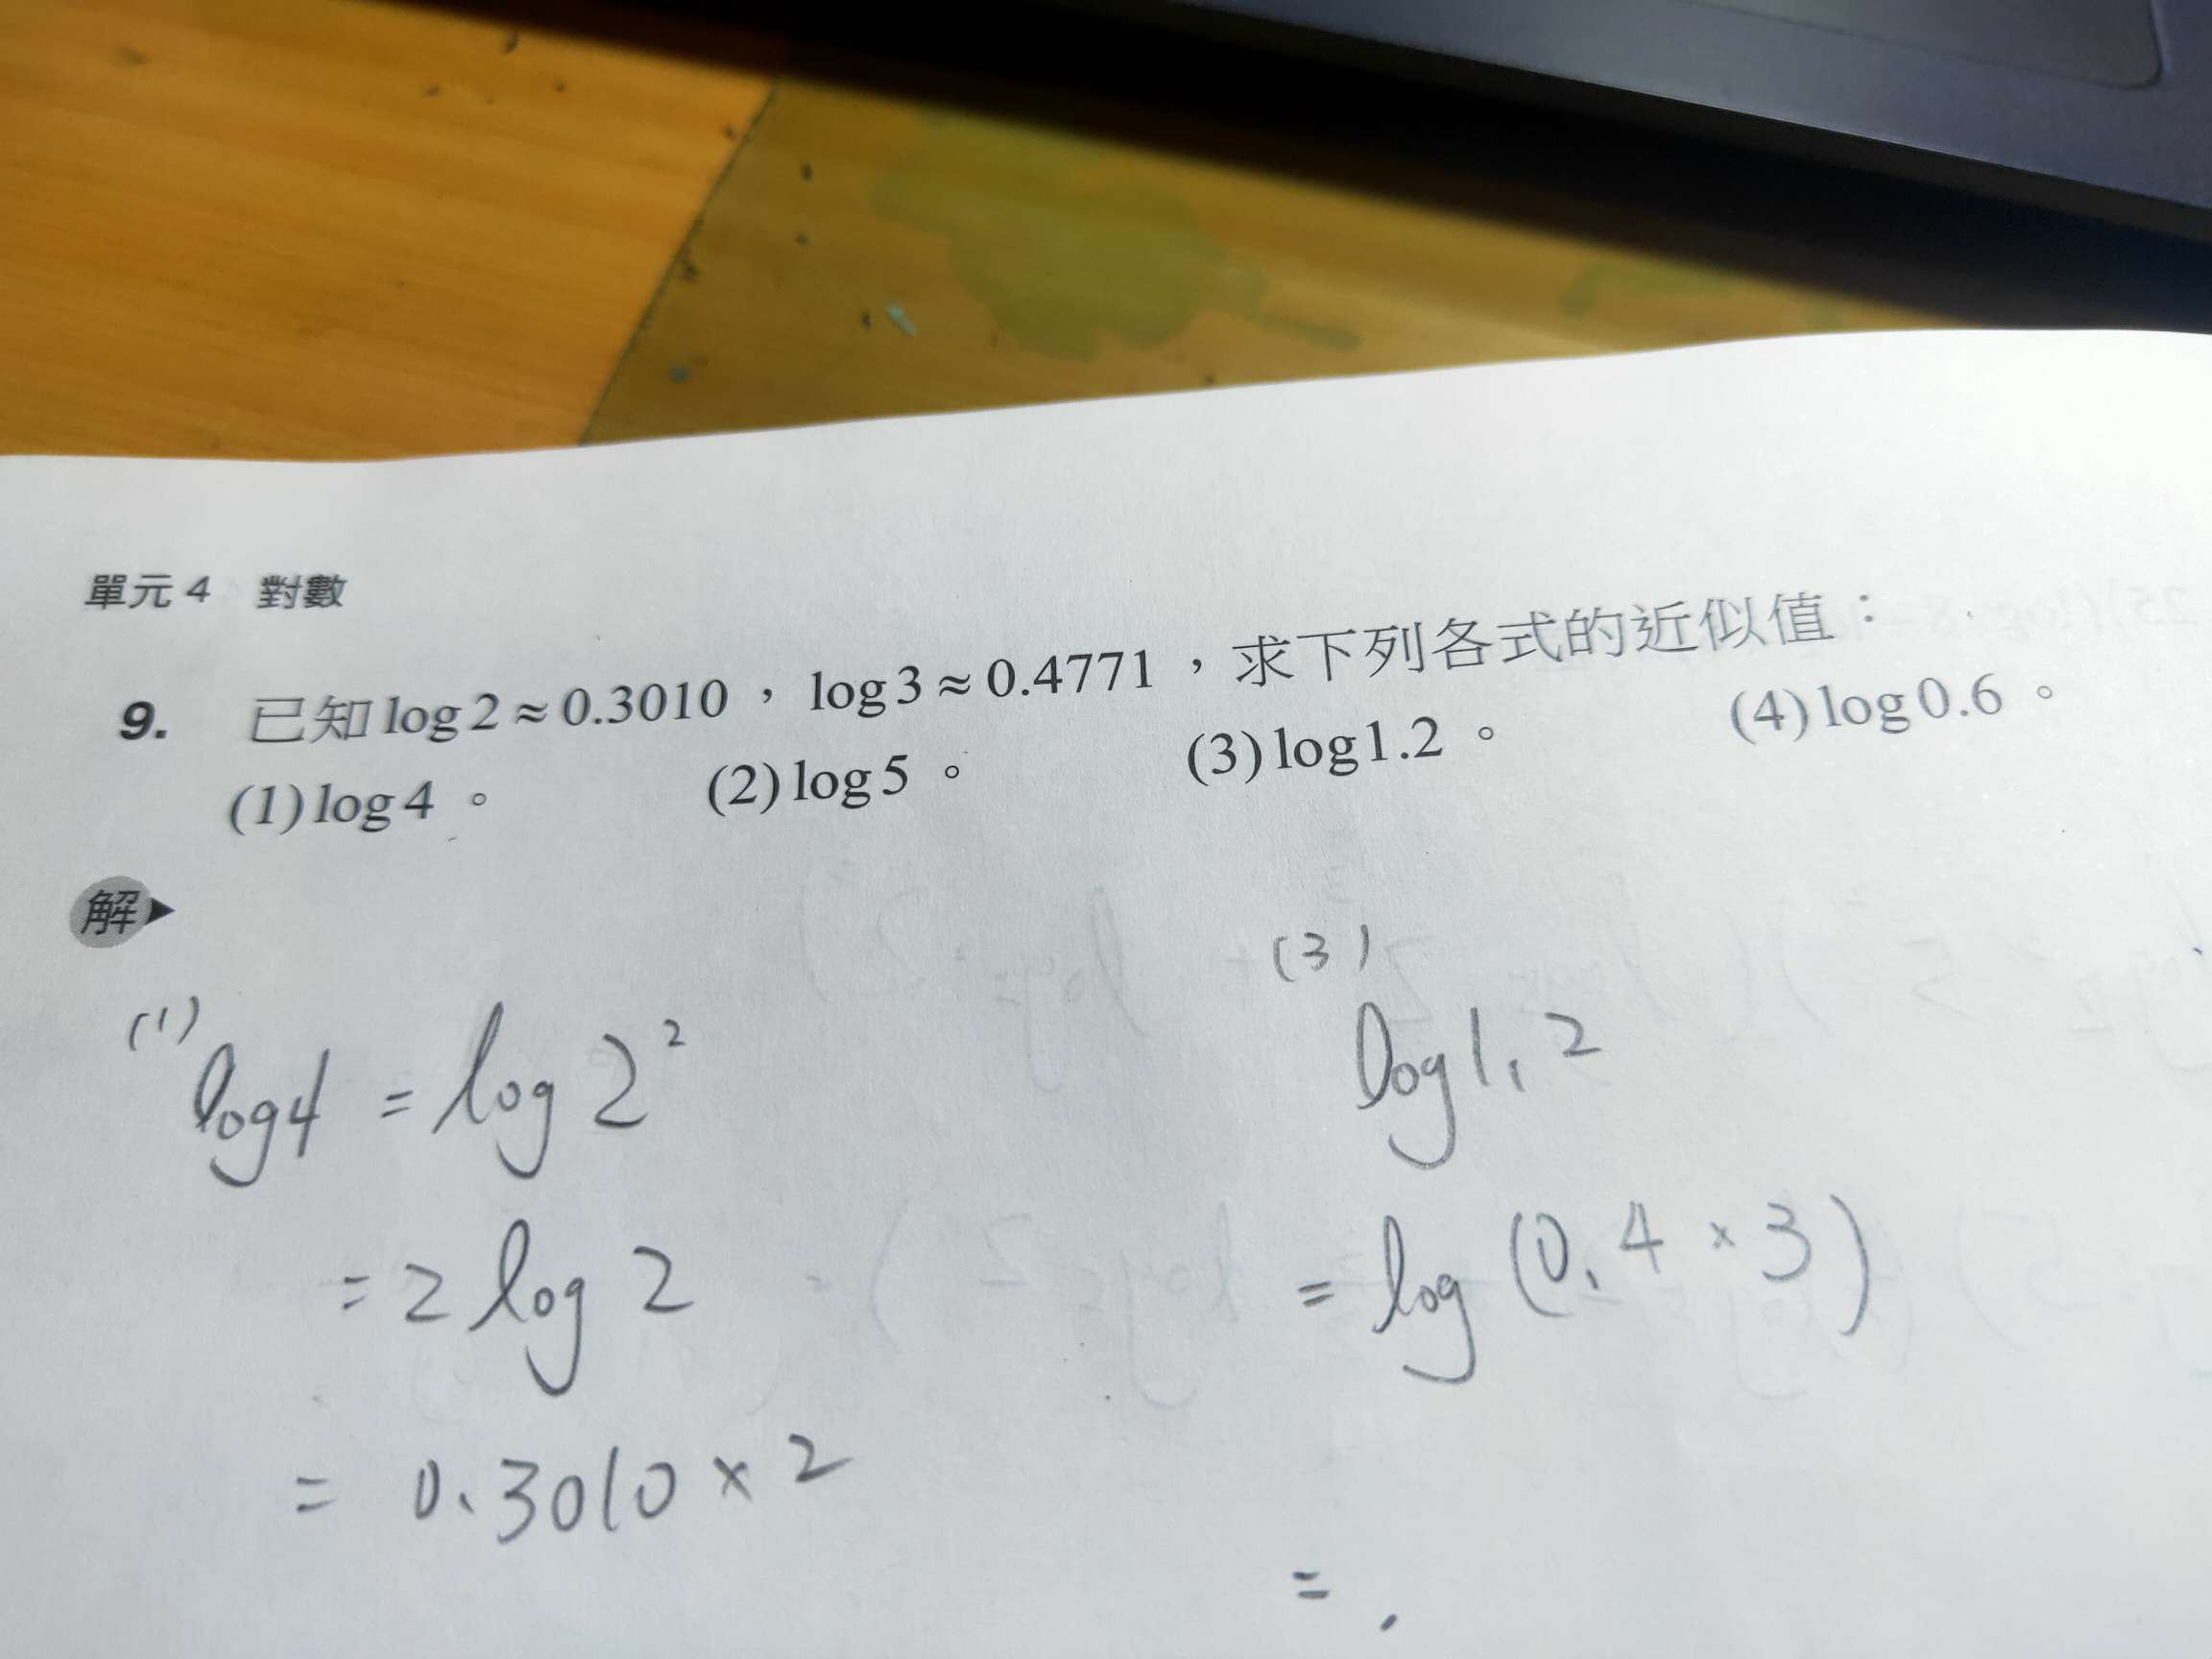 單元 4 對數
9. 已知 log 2 ≈ 0.3010，log 3 ≈ 0.4771，求下列各式的近似值：
(1) log 4 。 (2) log 5 。 (3) log 1.2 。 (4) log 0.6 。
解
(1)
log 4 = log 2²
= 2 log 2
= 0.3010 × 2
(3)
log 1.2
= log (0.4 × 3)
=